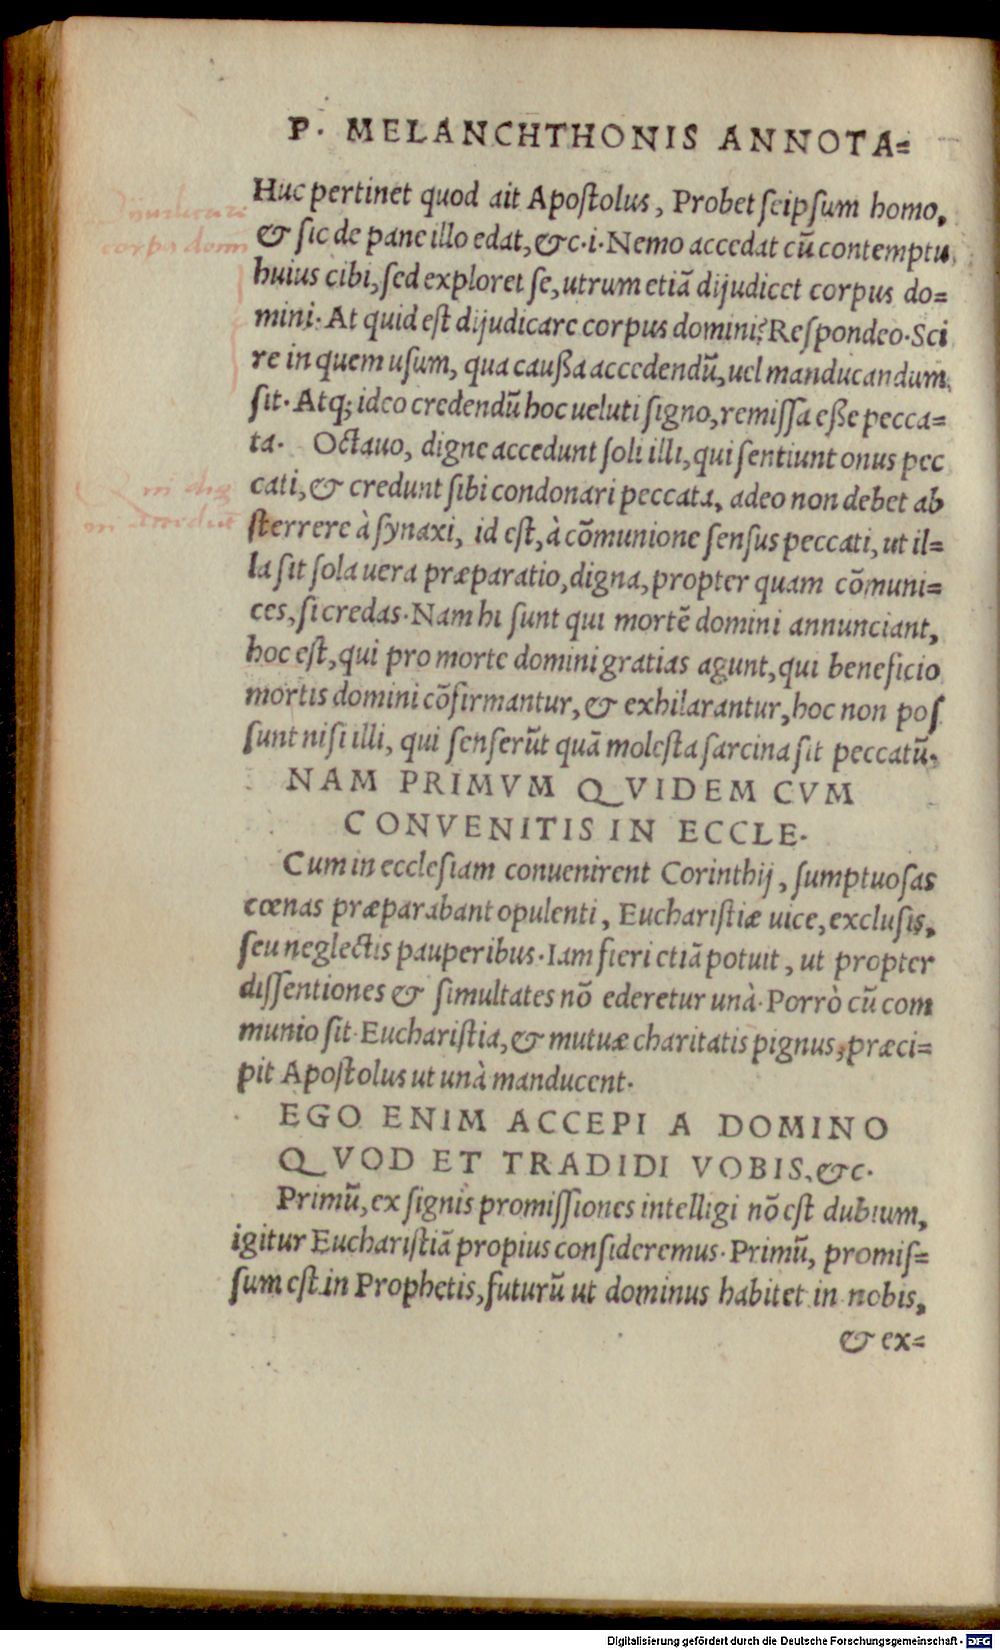 P. MELANCHTHONIS ANNOTA=
Huc pertinet quod ait Apoſtolus, Probet ſeipſum homo,
& ſic de pane illo edat, &c.i. Nemo accedat cū contemptu
huius cibi, ſed exploret ſe, utrum etiā dijudicet corpus do=
mini. At quid eſt dijudicare corpus domini? Reſpondeo. Sci
re in quem uſum, qua cauſſa accedendū, uel manducandum
ſit. Atq; ideo credendū hoc ueluti ſigno, remiſſa eſſe pecca=
ta. Octauo, digne accedunt ſoli illi, qui ſentiunt onus pec
cati, & credunt ſibi condonari peccata, adeo non debet ab
ſterrere à ſynaxi, id eſt, à cōmunione ſenſus peccati, ut il=
la ſit ſola uera præparatio, digna, propter quam cōmuni=
ces, ſi credas. Nam hi ſunt qui mortē domini annunciant,
hoc eſt, qui pro morte domini gratias agunt, qui beneficio
mortis domini cōfirmantur, & exhilarantur, hoc non poſ
ſunt niſi illi, qui ſenſerūt quā moleſta ſarcina ſit peccatū.
NAM PRIMVM QVIDEM CVM
CONVENITIS IN ECCLE.
Cum in eccleſiam conuenirent Corinthij, ſumptuoſas
cœnas præparabant opulenti, Euchariſtiæ uice, excluſis,
ſeu neglectis pauperibus. Iam fieri etiā potuit, ut propter
diſſentiones & ſimultates nō ederetur unà. Porrò cū com
munio ſit Euchariſtia, & mutuæ charitatis pignus, præci=
pit Apoſtolus ut unà manducent.
EGO ENIM ACCEPI A DOMINO
QVOD ET TRADIDI VOBIS, &c.
Primū, ex ſignis promiſſiones intelligi nō eſt dubium,
igitur Euchariſtiā propius conſideremus. Primū, promiſ=
ſum eſt in Prophetis, futurū ut dominus habitet in nobis,
& ex=
Dijudicare
corpus domi
Qui dig
ni accedūt
Digitalisierung gefördert durch die Deutsche Forschungsgemeinschaft - DFG